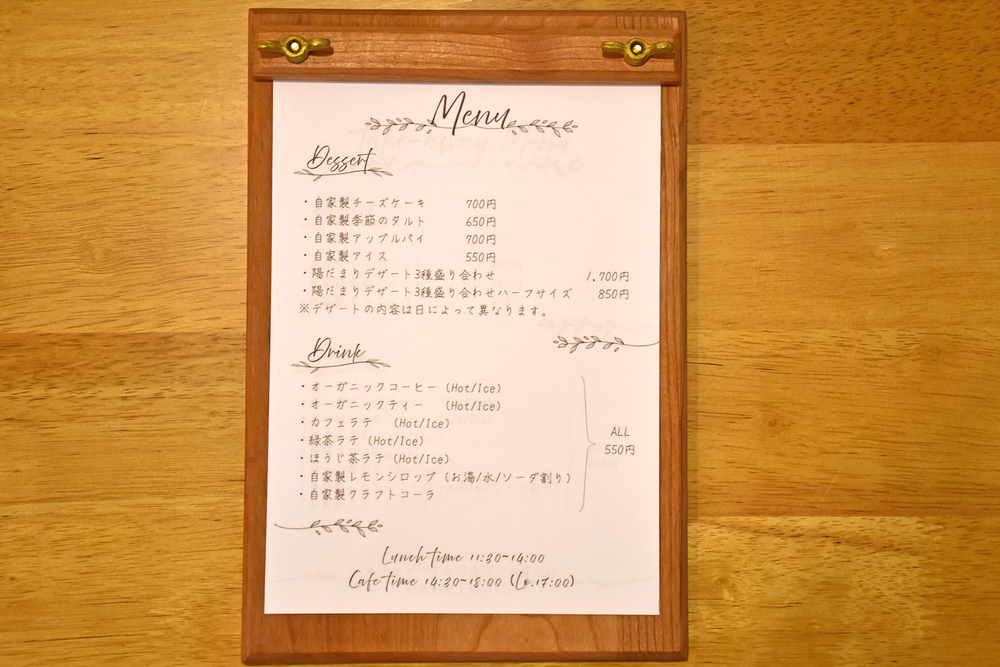 Menu
Dessert
・自家製チーズケーキ 700円
・自家製季節のタルト 650円
・自家製アップルパイ 700円
・自家製アイス 550円
・陽だまりデザート3種盛り合わせ 1,700円
・陽だまりデザート3種盛り合わせハーフサイズ 850円
※デザートの内容は日によって異なります。
Drink
・オーガニックコーヒー (Hot/Ice)
・オーガニックティー (Hot/Ice)
・カフェラテ (Hot/Ice)
・緑茶ラテ (Hot/Ice)
・ほうじ茶ラテ (Hot/Ice)
・自家製レモンシロップ (お湯/水/ソーダ割り)
・自家製クラフトコーラ
ALL
550円
Lunch time 11:30~14:00
Cafe time 14:30~18:00 (Lo.17:00)